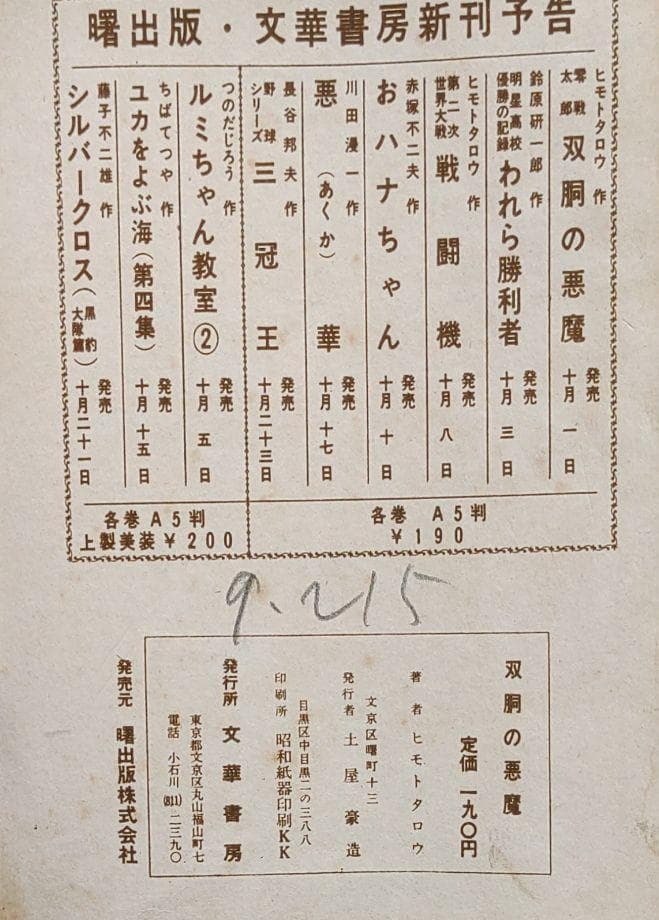 曙出版・文華書房新刊予告
ヒモトタロウ 作
零戦太郎 双胴の悪魔
発売 十月 一 日
鈴原研一郎 作
明星高校優勝の記録 われら勝利者
発売 十月 三 日
ヒモトタロウ 作
第二次世界大戦 戦闘機
発売 十月 八 日
赤塚不二夫 作
おハナちゃん
発売 十月 十 日
川田漫一 作
悪華(あくか)
発売 十月十七日
長谷邦夫 作
野球シリーズ 三冠王
発売 十月二十三日
つのだじろう 作
ルミちゃん教室②
発売 十月 五 日
ちばてつや 作
ユカをよぶ海(第四集)
発売 十月 十五日
藤子不二雄 作
シルバークロス(黒豹大隊篇)
発売 十月二十一日
各巻 A5判
¥190
各巻A5判
上製美装¥200
9.215
双胴の悪魔
定価 一九〇円
著者 ヒモトタロウ
文京区曙町十三
発行者 土屋豪造
目黒区中目黒二の三八八
印刷所 昭和紙器印刷KK
発行所 文華書房
東京都文京区丸山福山町七
電話 小石川(811)二三九〇
発売元 曙出版株式会社